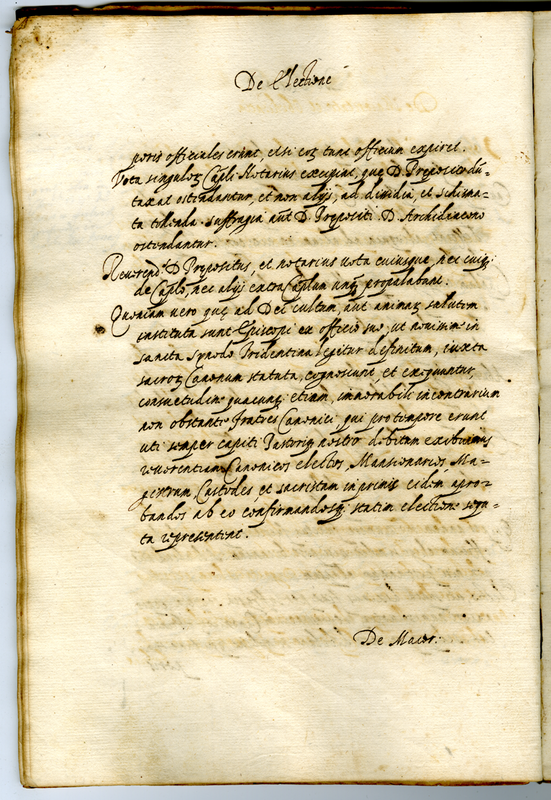 De Electione
poris officiales erunt, etsi eoꝝ tunc officium expiret.
Vota singuloꝝ Capli Notarius excipiat, que D. Preposito du-
taxat ostendantur, et non alijs, ad dissidia, et schisma-
ta tollenda. suffragia aũt D. Prepositi D. Archidiacono
ostendantur.
Reverend. D. Prepositus, et notarius vota cuiusque, nec cuiq;
de Caplo, nec alijs extra Caplum unq̃ propalabant.
Quoniam vero que ad Dei cultum, aut animaꝝ salutem
instituta sunt Episcopi ex officio suo, ut novissime in
sancta synodo Tridentina legitur definitum, iuxta
sacroꝝ Canonum statuta, cognoscunt, et exequuntur,
consuetudine quacunq; etiam immorabili incontrarium
non obstante fratres Canonici qui pro tempore erunt
uti semper capiti Pastoriq; nostro debitam exibuimus
reverentiam Canonicos electos, Mansionarios Ma-
gistrum, Custodes et sacristam inprimis eidem apro-
bandos ab eo confirmandosq; statim electione sequu-
ta representent.
De Maior: